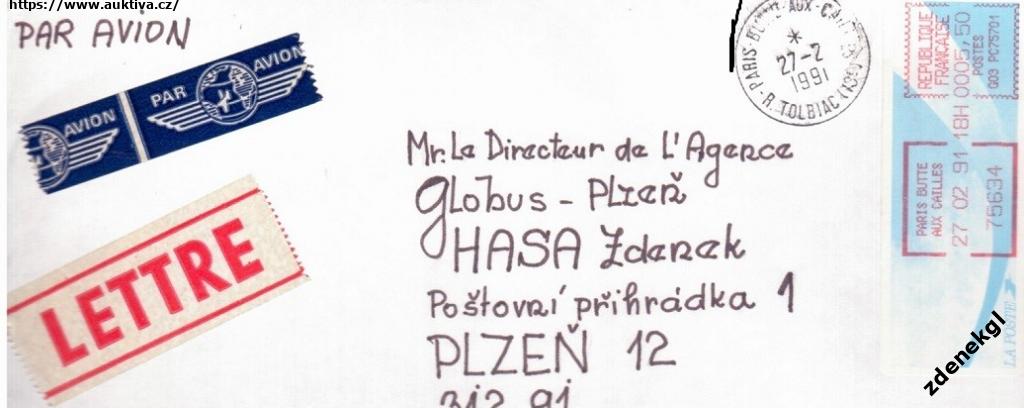 https://www.auktiva.cz/
PAR AVION
AVION
PAR AVION
LETTRE
PARIS BUTTE AUX-CAILLES
*
27-2
1991
R. TOLBIAC (13e)
REPUBLIQUE
FRANCAISE
0005,50
POSTES
G03 PC75701
PARIS BUTTE
AUX CAILLES
27 02 91 18H
75634
LA POSTE
Mr. Le Directeur de L'Agence
Globus - Plzeň
HASA Zdenek
Poštovní přihrádka 1
PLZEŇ 12
312 91
zdenekgl